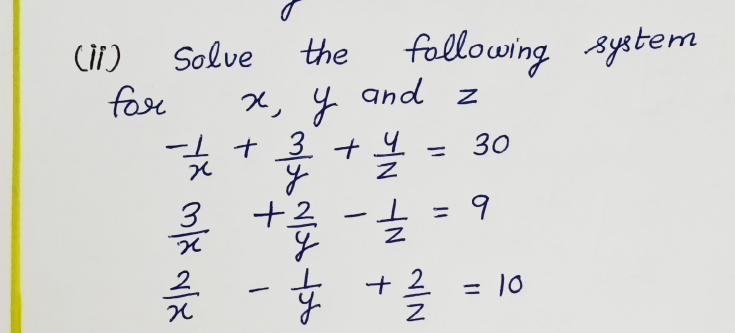 (ii) Solve the following system
for x, y and z
-1/x + 3/y + 4/z = 30
3/x + 2/y - 1/z = 9
2/x - 1/y + 2/z = 10